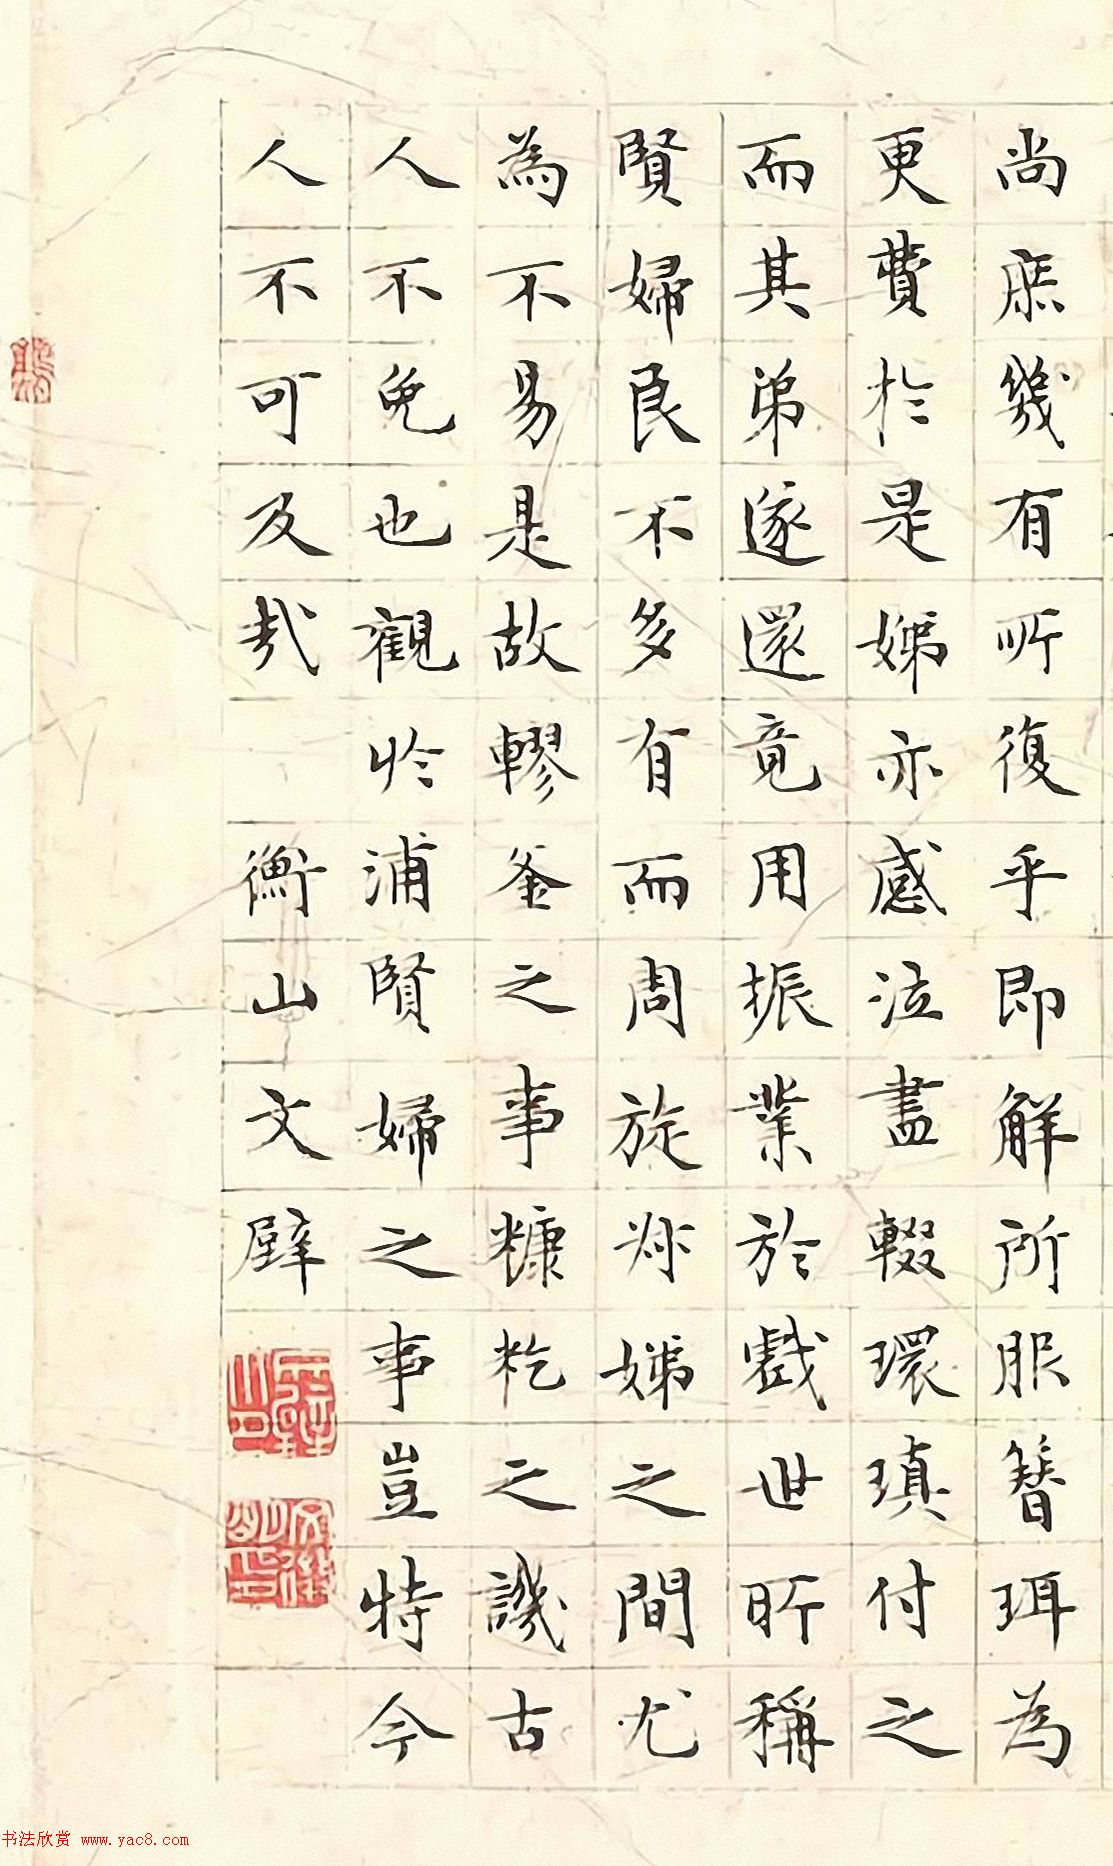 尚庶幾有所復乎即解所服簪珥為
更費於是娣亦感泣盡輟環瑱付之
而其弟遂還竟用振業於戲世所稱
賢婦良不多有而周旋姒娣之間尤
為不易是故轑釜之事糠籺之譏古
人不免也觀於浦賢婦之事豈特今
人不可及哉 衡山文壁
书法欣赏 www.yac8.com